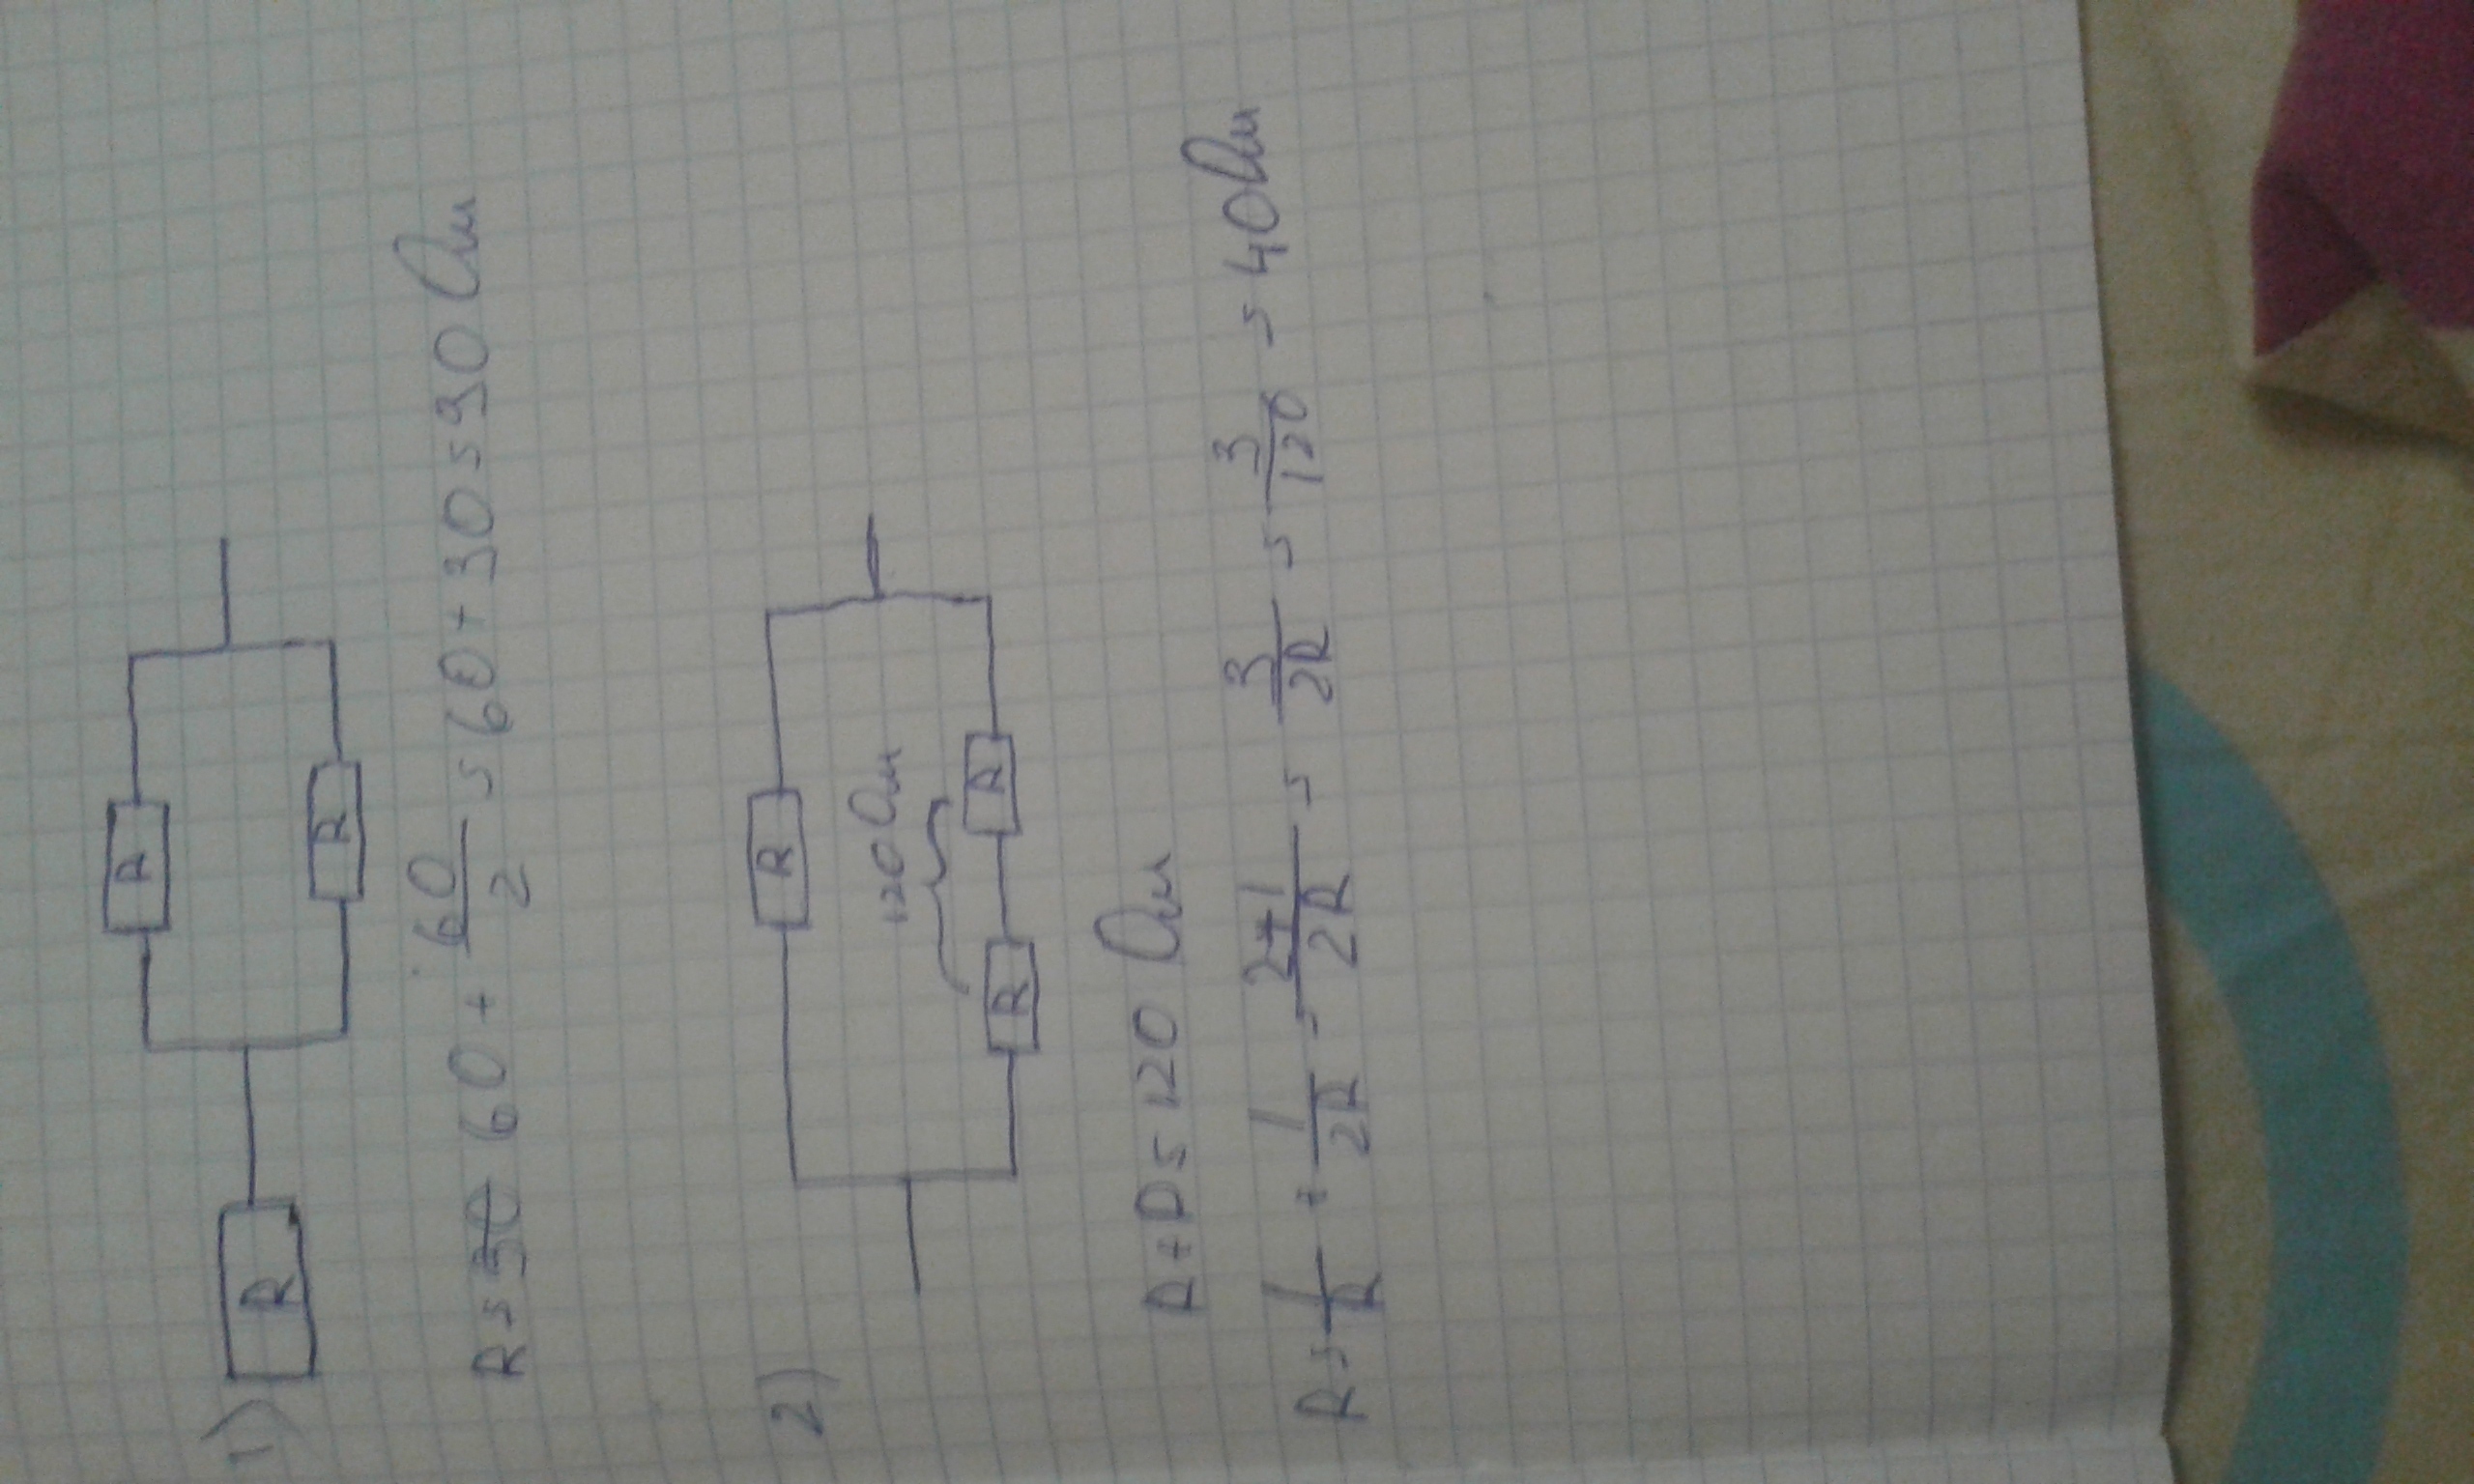 1)
R
R
R
R = 30 60 + 60/2 = 60 + 30 = 90 Ом
2)
R
120 Ом
R
R
R + R = 120 Ом
R = 1/R + 1/2R = 2+1/2R = 3/2R = 3/120 = 40 Ом